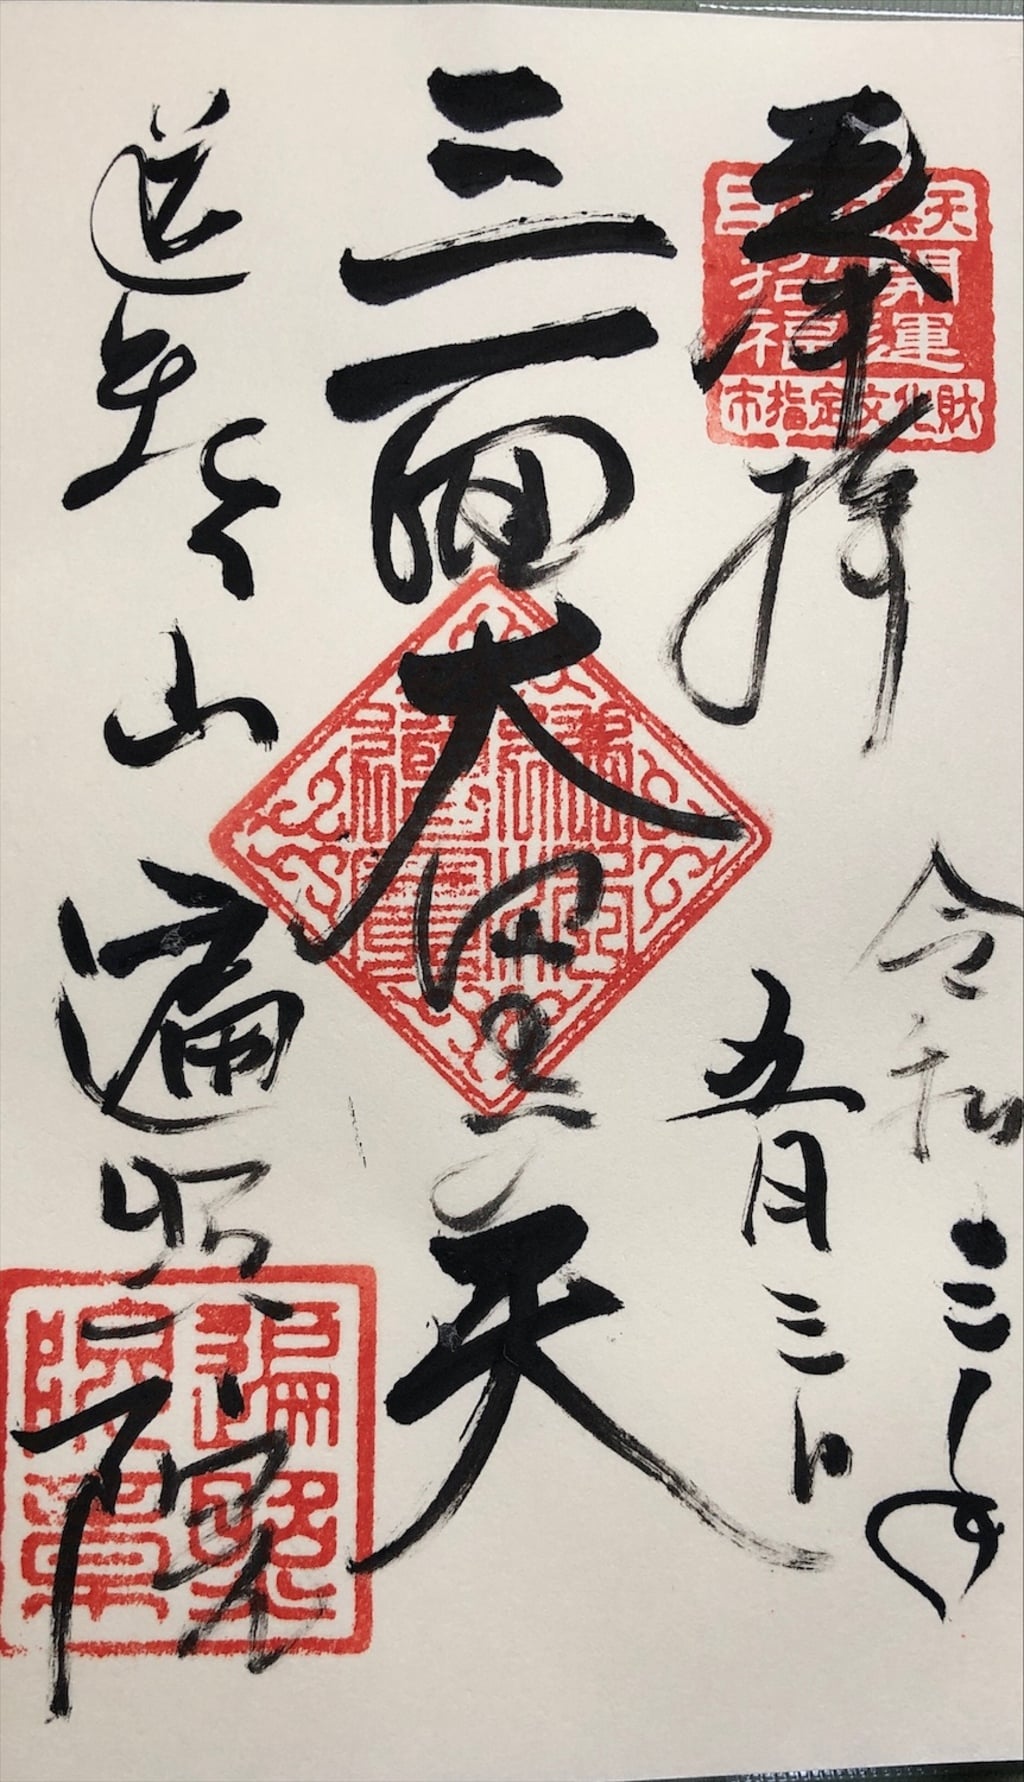 奉拝
三面大黒天
開運
招福
市指定文化財
令和三年
五月三日
三面大黒天
山
遍照院
遍照院章